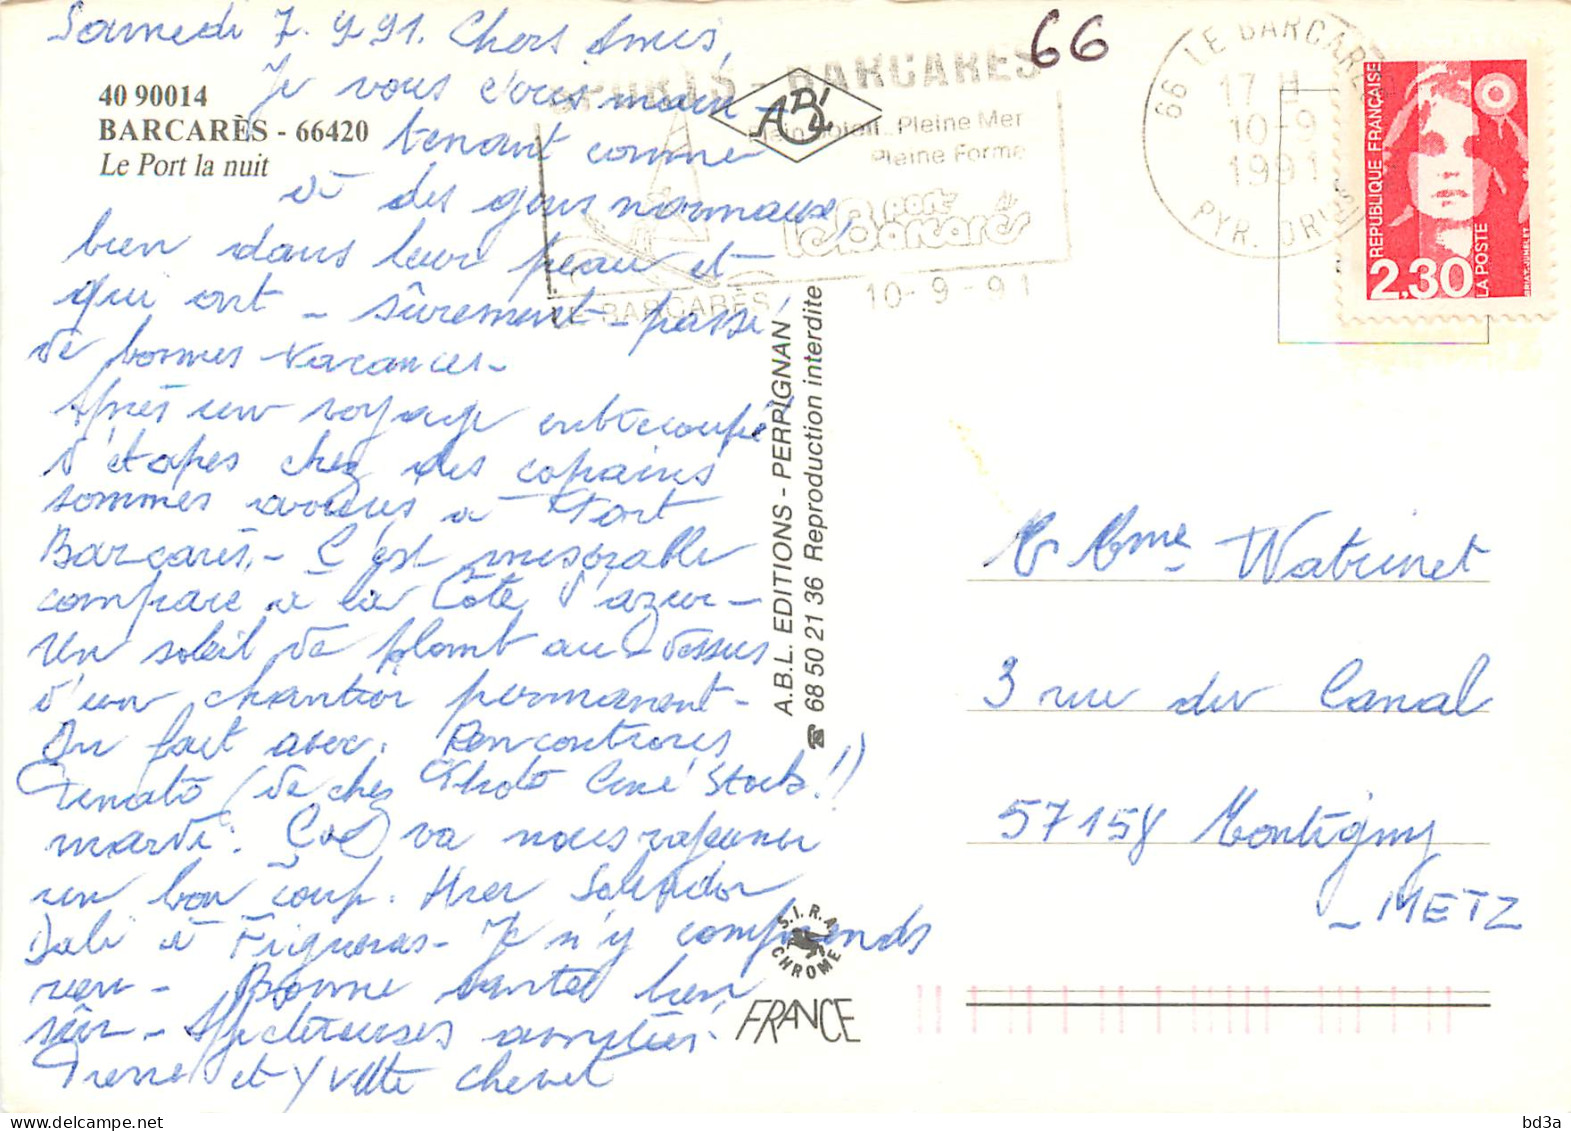 Samedi 7.9.91. Chers Amis,
Je vous écris main-
tenant comme
à des gens normaux
bien dans leur peau et
qui ont - sûrement - passé
de bonnes vacances -
Après un voyage entrecoupé
d'étapes chez des copains
sommes arrivés à Port
Barcarès. - C'est misérable
comparé à la Côte d'azur -
Un soleil de plomb au dessus
d'un chantier permanent -
On fait avec. Rencontrons
Renato (de chez Photo Ciné Stock!!)
mardi. Ça va nous rajeunir
un bon coup. Hier Salvador
Dali à Figueras - Je n'y comprends
rien - Bonne santé bien
sûr - Affectueuses amitiés!
Pierre et Yvette Chenet
40 90014
BARCARÈS - 66420
Le Port la nuit
ABL
SPORTS - BARCARES
Plein Soleil.. Pleine Mer
Pleine Forme
le port-Barcarès
LE BARCARÈS
10-9-91
66
66 LE BARCARES
17 H
10-9
1991
PYR. ORIES
RÉPUBLIQUE FRANÇAISE
2,30
LA POSTE
BRIAT-JUMELET
A.B.L. EDITIONS - PERPIGNAN
☎ 68 50 21 36 Reproduction interdite
S.I.R.A.
CHROME
FRANCE
M Mme Watrinet
3 rue du Canal
57158 Montigny
- METZ
bd3a